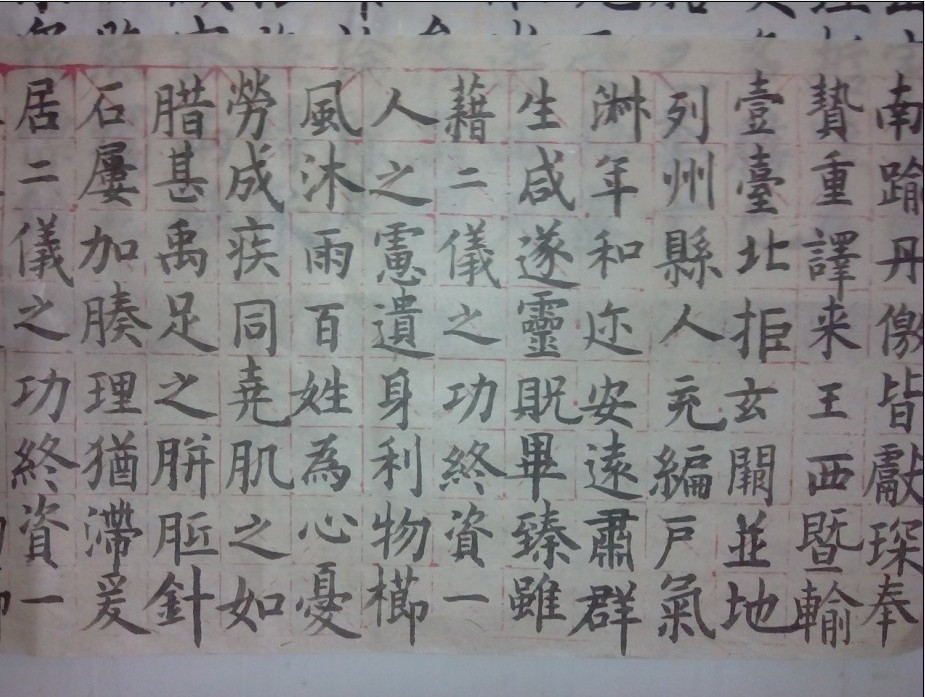 南踰丹儌皆獻琛奉
贄重譯来王西暨輪
壹臺北拒玄闕並地
列州縣人充編戶氣
淋年和迩安遠肅群
生咸遂靈貺畢臻雖
藉二儀之功終資一
人之慮遺身利物櫛
風沐雨百姓為心憂
勞成疾同堯肌之如
腊甚禹足之胼胝針
石屢加腠理猶滯爰
居二儀之功終資一